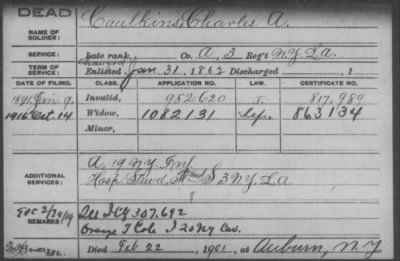 DEAD
NAME OF SOLDIER: Caulkins, Charles A.
SERVICE: Late rank, Co. A, 3 Reg't N.Y. L.A.
TERM OF SERVICE: Enlisted Jan. 31, 1862 Discharged , 1
DATE OF FILING. CLASS. APPLICATION. LAW. CERTIFICATE NO.
1891 9. Invalid, 982620 817,989
1916 Oct. 14 Widow, 1082131 863134
Minor,
ADDITIONAL SERVICES:
A, 19 N.Y. Inf.
Hosp. Stewd, F and S 3 N.Y. L.A.
REMARKS:
307,692
I 20 N.Y. Cav.
Died Feb 22, 1901, at Auburn, N.Y.